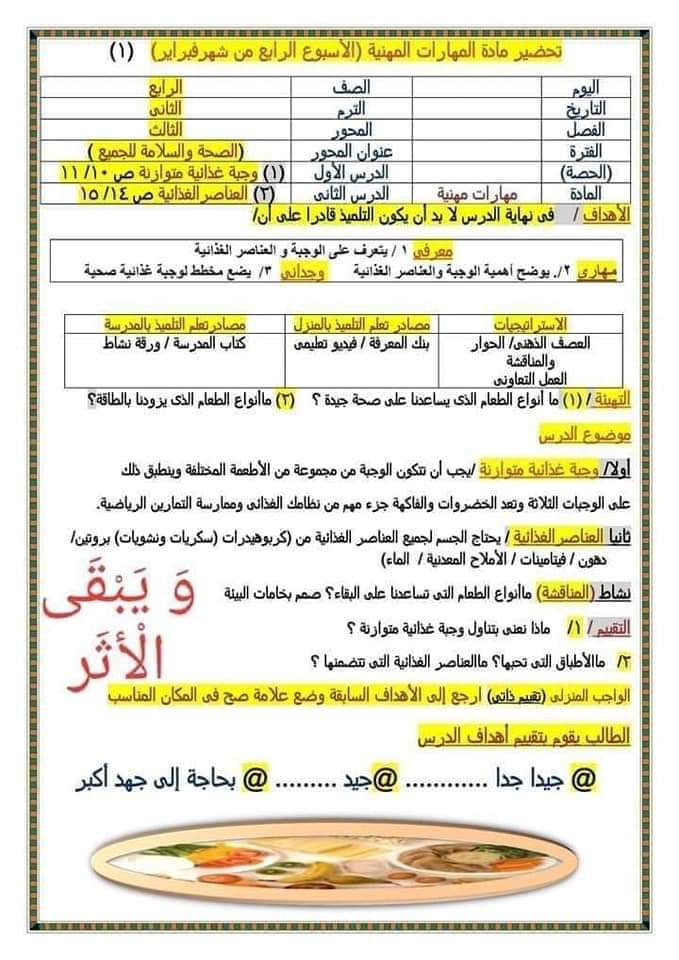 تحضير مادة المهارات المهنية (الأسبوع الرابع من شهرفبراير) (١)
اليوم الصف الرابع
التاريخ الترم الثانى
الفصل المحور الثالث
الفترة عنوان المحور (الصحة والسلامة للجميع )
(الحصة) الدرس الأول (١) وجبة غذائية متوازنة ص ١٠/ ١١
المادة مهارات مهنية الدرس الثانى (٢) العناصرالغذائية ص ١٤/ ١٥
الأهداف / فى نهاية الدرس لا بد أن يكون التلميذ قادرا على أن/
معرفي ١ / يتعرف على الوجبة و العناصر الغذائية
مهاري ٢/. يوضح أهمية الوجبة والعناصر الغذائية وجداني ٣/ يضع مخطط لوجبة غذائية صحية
الاستراتيجيات مصادر تعلم التلميذ بالمنزل مصادرتعلم التلميذ بالمدرسة
العصف الذهنى/ الحوار بنك المعرفة / فيديو تعليمى كتاب المدرسة / ورقة نشاط
والمناقشة
العمل التعاونى
التهيئة / (١) ما أنواع الطعام الذى يساعدنا على صحة جيدة ؟ (٢) ماأنواع الطعام الذى يزودنا بالطاقة؟
موضوع الدرس
أولا/ وجبة غذائية متوازنة /يجب أن تتكون الوجبة من مجموعة من الأطعمة المختلفة وينطبق ذلك
على الوجبات الثلاثة وتعد الخضروات والفاكهة جزء مهم من نظامك الغذائى وممارسة التمارين الرياضية.
ثانيا العناصرالغذائية / يحتاج الجسم لجميع العناصر الغذائية من (كربوهيدرات (سكريات ونشويات) بروتين/
دهون / فيتامينات / الأملاح المعدنية / الماء)
نشاط (المناقشة) ماأنواع الطعام التى تساعدنا على البقاء؟ صمم بخامات البيئة
وَ يَبْقَى
الْأثَر
التقييم / ١/ ماذا نعنى بتناول وجبة غذائية متوازنة ؟
٢/ ماالأطباق التى تحبها؟ ماالعناصر الغذائية التى تتضمنها ؟
الواجب المنزلى (تقييم ذاتي) ارجع إلى الأهداف السابقة وضع علامة صح فى المكان المناسب
الطالب يقوم بتقييم أهداف الدرس
@ جيدا جدا ............ @جيد ......... @ بحاجة إلى جهد أكبر